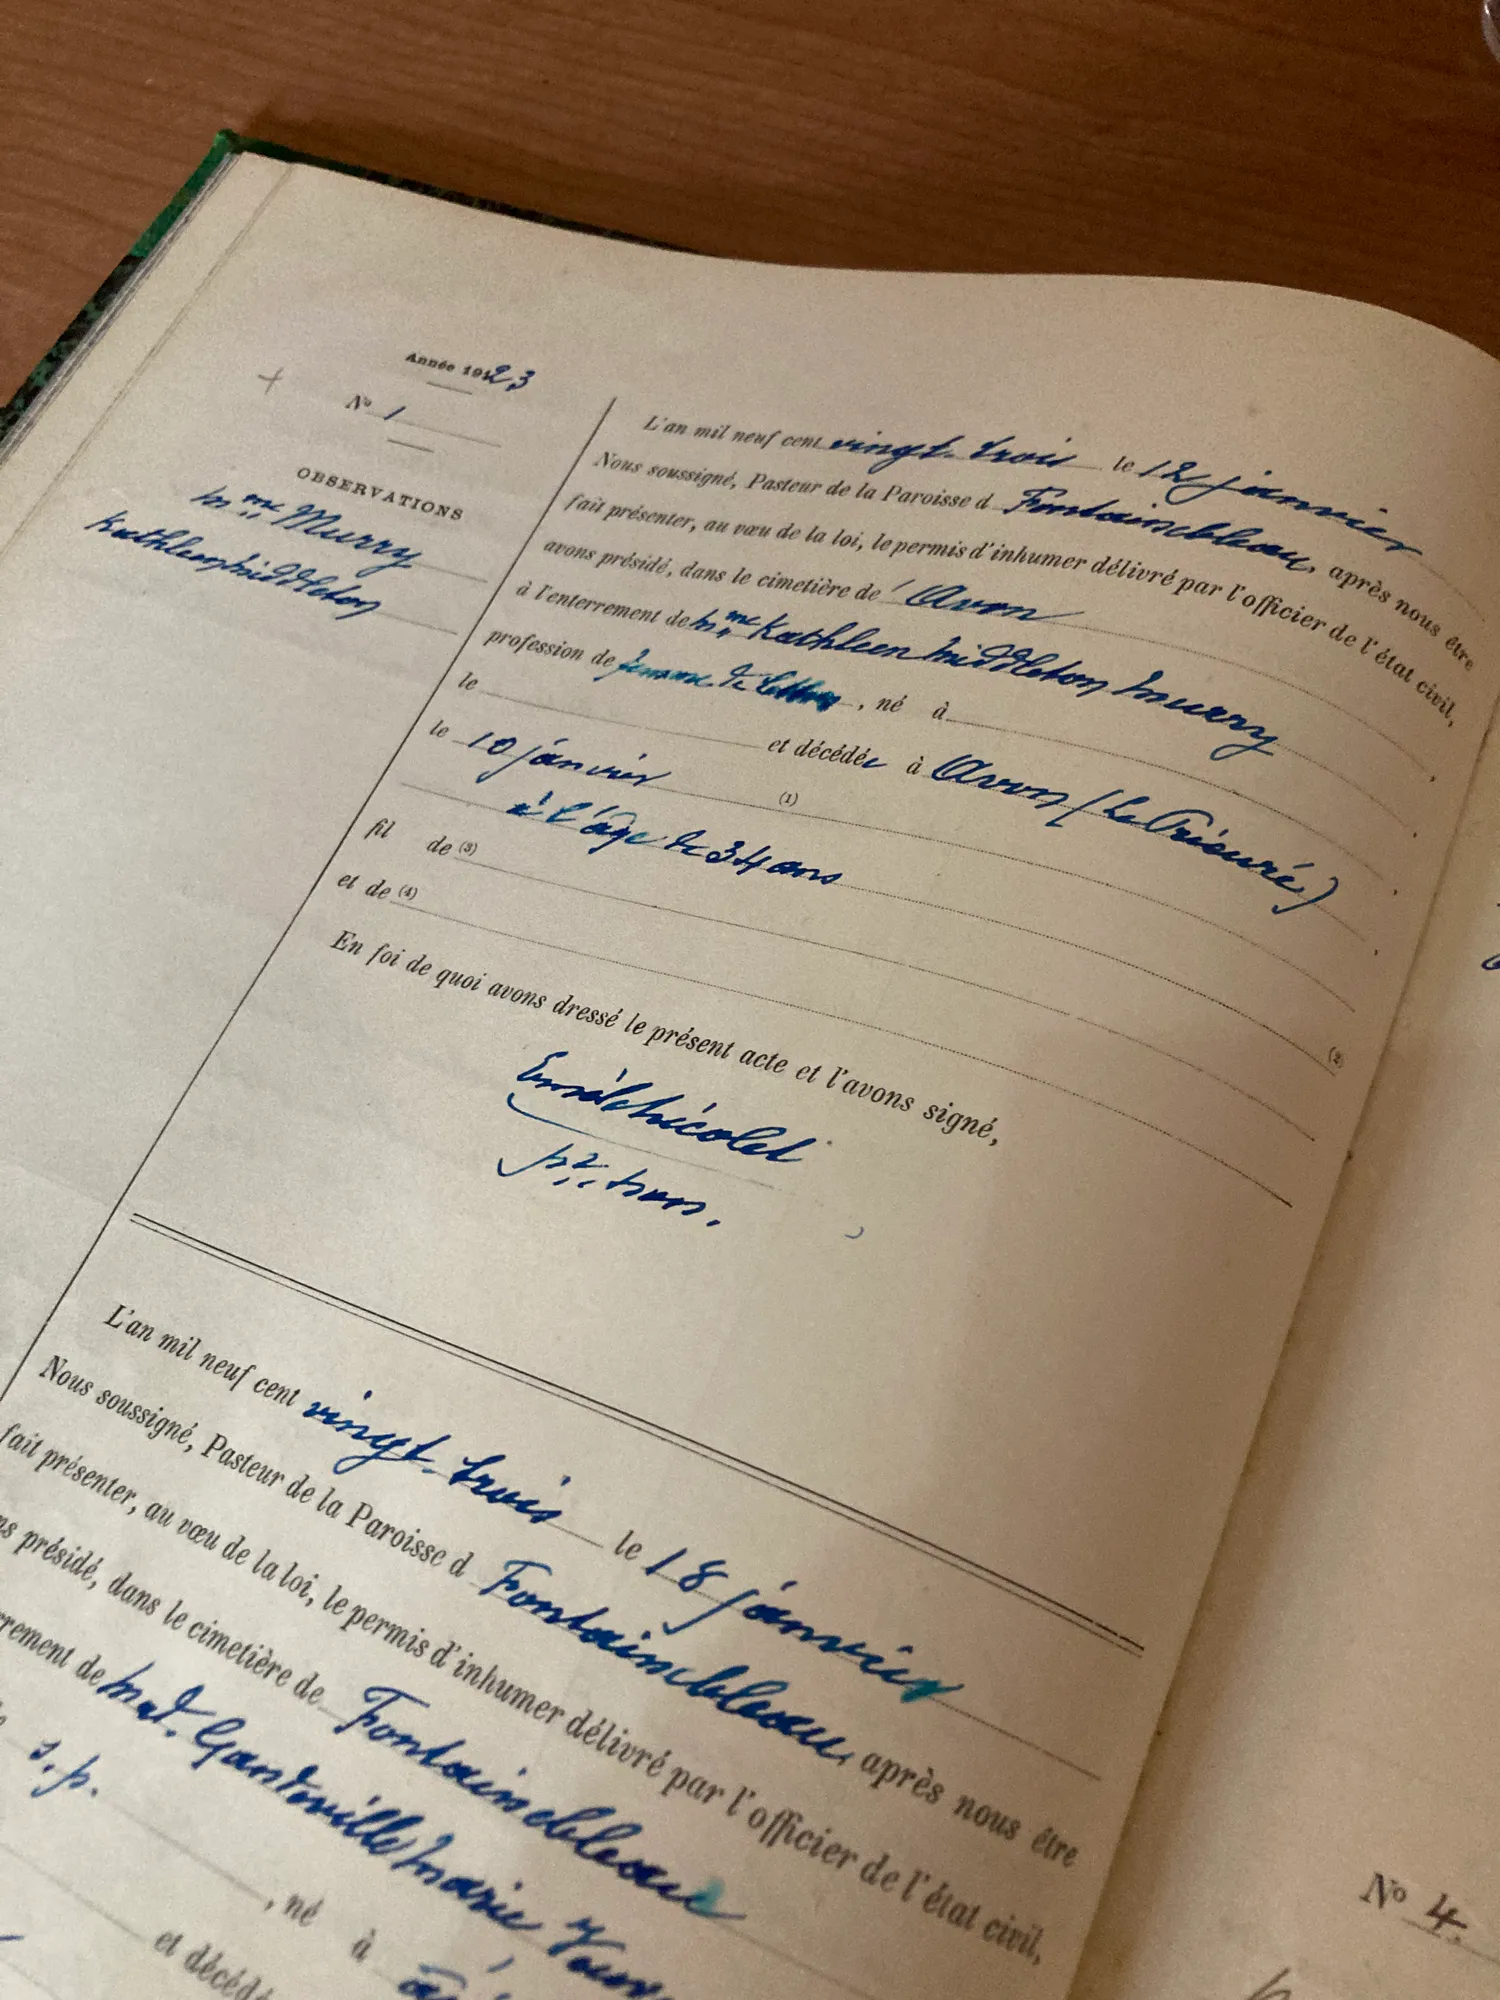 Année 1923
N° 1
OBSERVATIONS
Mme Murry
Kathleen Middleton
L'an mil neuf cent vingt-trois le 12 janvier
Nous soussigné, Pasteur de la Paroisse d Fontainebleau, après nous être
fait présenter, au vœu de la loi, le permis d'inhumer délivré par l'officier de l'état civil,
avons présidé, dans le cimetière de Avon
à l'enterrement de Mme Kathleen Middleton Murry
profession de femme de lettres, né à
le et décédée à Avon (Le Prieuré)
le 10 janvier (1)
à l'âge de 34 ans (2)
fil de (3)
et de (4)
En foi de quoi avons dressé le présent acte et l'avons signé,
L'an mil neuf cent vingt-trois le 18 janvier
Nous soussigné, Pasteur de la Paroisse d Fontainebleau, après nous être
fait présenter, au vœu de la loi, le permis d'inhumer délivré par l'officier de l'état civil,
ns présidé, dans le cimetière de Fontainebleau
rrement de Mad. Gandoville Marie
s.p. , né à
et décédé
N° 4